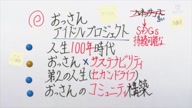 おっさん
アイドルプロジェクト
SDGs
持続可能な
人生100年時代
おっさん×サステナビリティ
第2の人生(セカンドライフ)
おっさんのコミュニティ構築